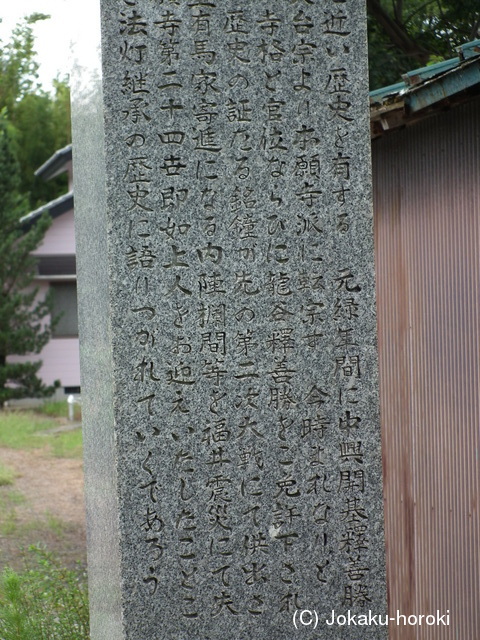 近い歴史を有する 元禄年間に中興開基釋善勝
台宗より本願寺派に転宗す 今時まれなりと
寺格と官位ならびに龍谷釋善勝をご免許下され
歴史の証たる銘鐘が先の第二次大戦にて供出さ
有馬家寄進になる内陣欄間等を福井震災にて失
寺第二十四世即如上人をお迎えいたしたことこ
法灯継承の歴史に語りつがれていくであろう
(C) Jokaku-horoki